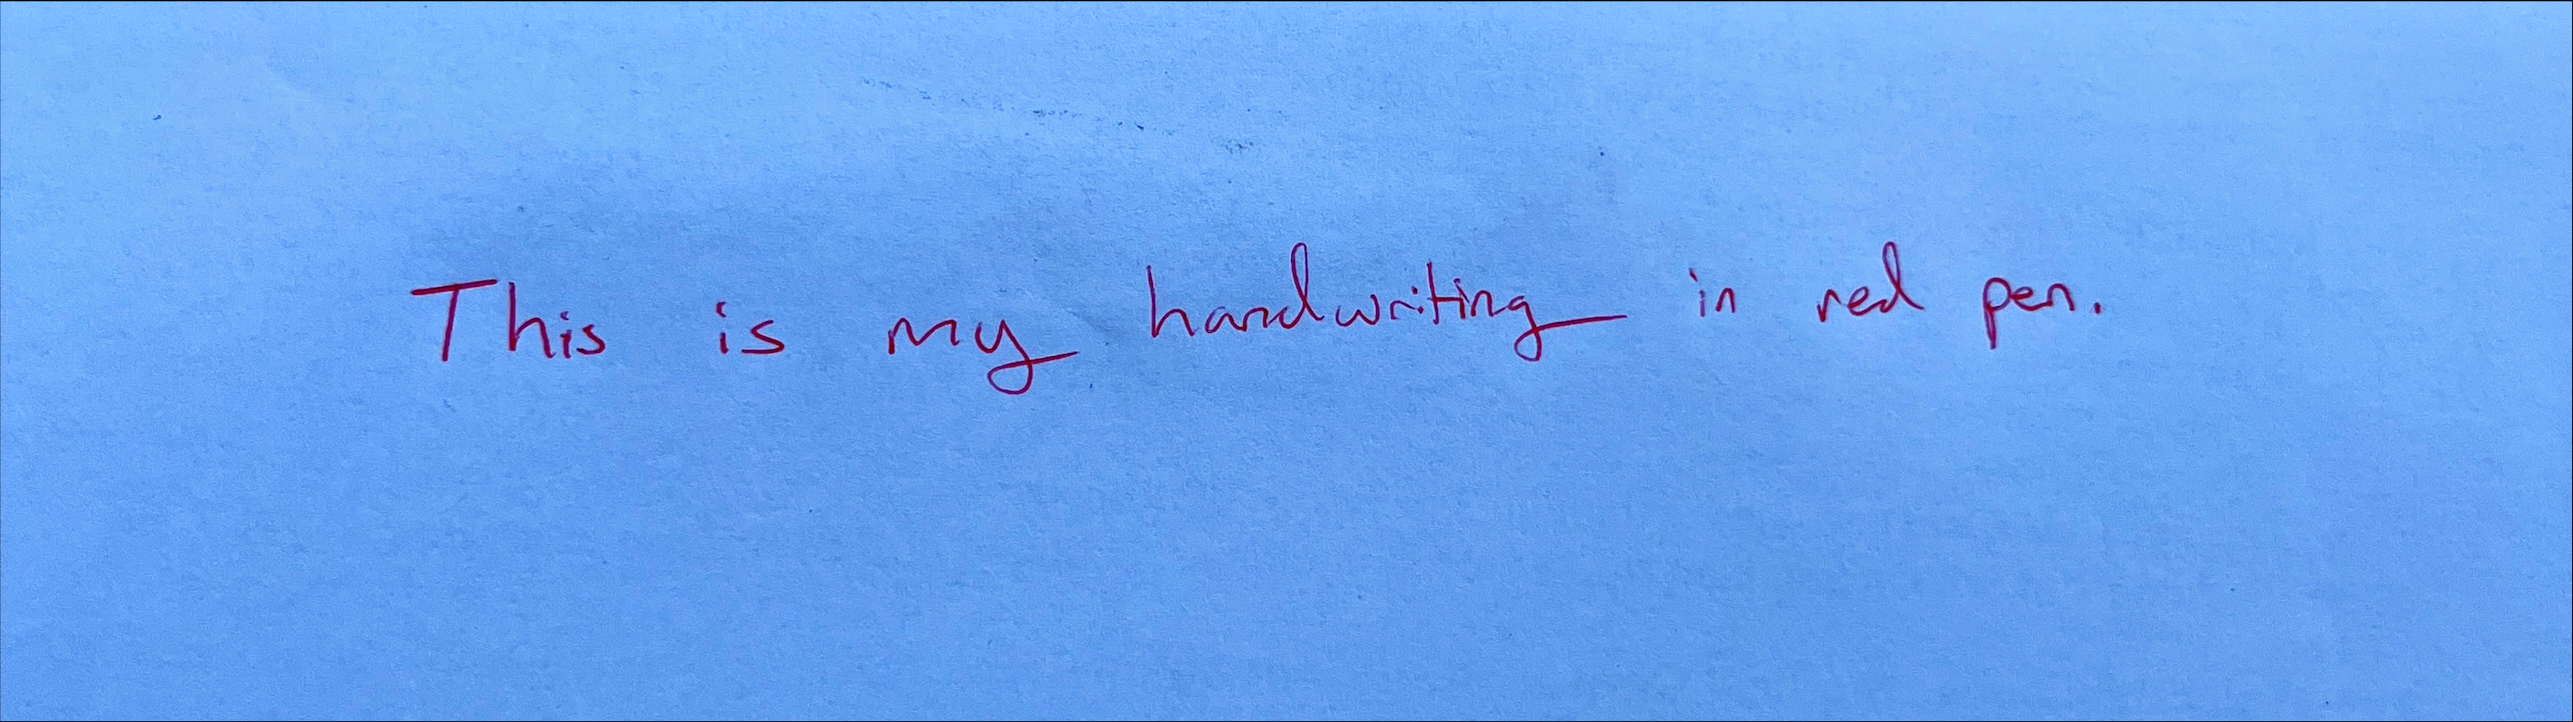 This is my handwriting in red pen.